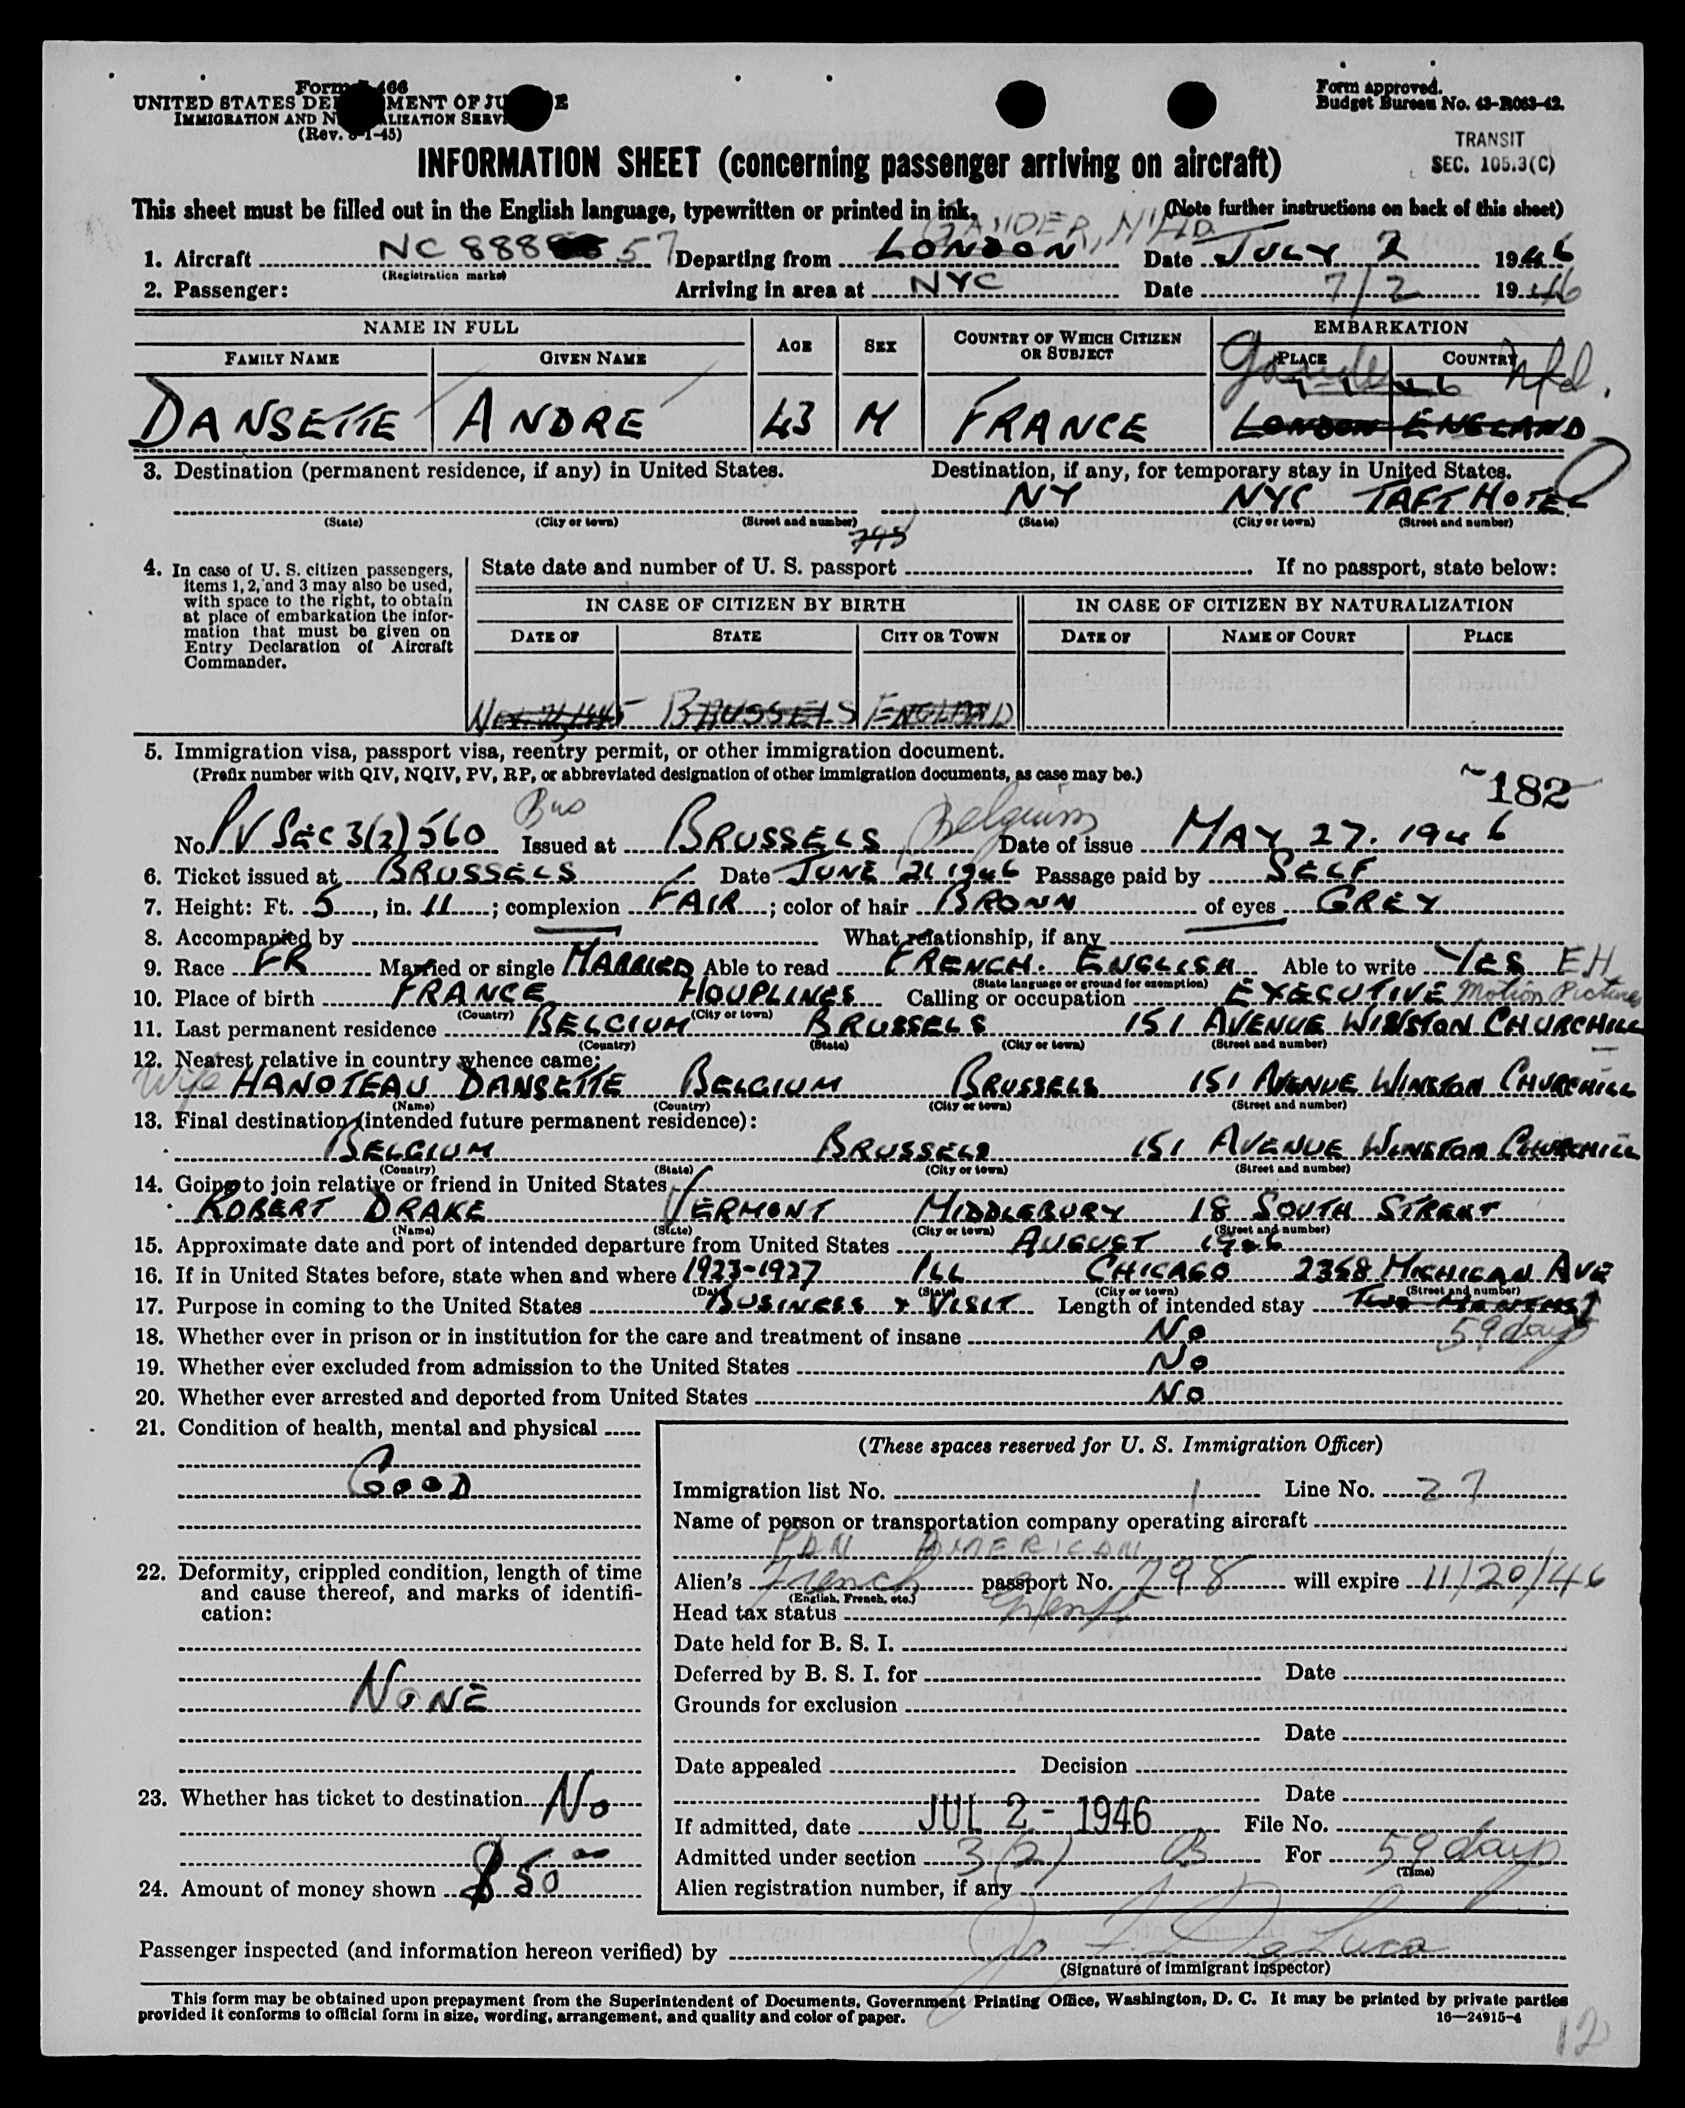 Form 466
UNITED STATES DE MENT OF JU E
IMMIGRATION AND N ALIZATION SERV
(Rev. -1-45)
Form approved.
Budget Bureau No. 43-R063-42.
TRANSIT
SEC. 105.3(C)
INFORMATION SHEET (concerning passenger arriving on aircraft)
This sheet must be filled out in the English language, typewritten or printed in ink. (Note further instructions on back of this sheet)
GANDER, N'FLD.
1. Aircraft NC 888 57 Departing from LONDON Date JULY 2 1946
(Registration marks)
2. Passenger: Arriving in area at NYC Date 7/2 1946
NAME IN FULL AGE SEX COUNTRY OF WHICH CITIZEN OR SUBJECT EMBARKATION
FAMILY NAME GIVEN NAME PLACE COUNTRY
Gander Nfd.
DANSETTE ANDRE 43 M FRANCE LONDON ENGLAND
3. Destination (permanent residence, if any) in United States. Destination, if any, for temporary stay in United States.
NY NYC TAFT HOTEL
(State) (City or town) (Street and number) (State) (City or town) (Street and number)
795
4. In case of U. S. citizen passengers, items 1, 2, and 3 may also be used, with space to the right, to obtain at place of embarkation the information that must be given on Entry Declaration of Aircraft Commander.
State date and number of U. S. passport If no passport, state below:
IN CASE OF CITIZEN BY BIRTH IN CASE OF CITIZEN BY NATURALIZATION
DATE OF STATE CITY OR TOWN DATE OF NAME OF COURT PLACE
BRUSSELS ENGLAND
5. Immigration visa, passport visa, reentry permit, or other immigration document.
(Prefix number with QIV, NQIV, PV, RP, or abbreviated designation of other immigration documents, as case may be.)
182
Bus Belgium
No. PV SEC 3(2) 560 Issued at BRUSSELS Date of issue MAY 27. 1946
6. Ticket issued at BRUSSELS Date JUNE 21 1946 Passage paid by SELF
7. Height: Ft. 5, in. 11; complexion FAIR; color of hair BRONN of eyes GREY
8. Accompanied by What relationship, if any
9. Race FR Married or single MARRIED Able to read FRENCH. ENGLISH Able to write YES EH
(State language or ground for exemption)
10. Place of birth FRANCE HOUPLINES Calling or occupation EXECUTIVE Motion Pictures
(Country) (City or town)
11. Last permanent residence BELGIUM BRUSSELS 151 AVENUE WINSTON CHURCHILL
(Country) (State) (City or town) (Street and number)
12. Nearest relative in country whence came:
Wife HANOTEAU DANSETTE BELGIUM BRUSSELS 151 AVENUE WINSTON CHURCHILL
(Name) (Country) (City or town) (Street and number)
13. Final destination (intended future permanent residence):
BELGIUM BRUSSELS 151 AVENUE WINSTON CHURCHILL
(Country) (State) (City or town) (Street and number)
14. Going to join relative or friend in United States
ROBERT DRAKE VERMONT MIDDLEBURY 18 SOUTH STREET
(Name) (State) (City or town) (Street and number)
15. Approximate date and port of intended departure from United States AUGUST 1946
16. If in United States before, state when and where 1923-1927 ILL CHICAGO 2358 MICHIGAN AVE
(Date) (State) (City or town) (Street and number)
17. Purpose in coming to the United States BUSINESS & VISIT Length of intended stay TWO MONTHS
18. Whether ever in prison or in institution for the care and treatment of insane NO 59 days
19. Whether ever excluded from admission to the United States NO
20. Whether ever arrested and deported from United States NO
21. Condition of health, mental and physical
GOOD
22. Deformity, crippled condition, length of time and cause thereof, and marks of identification:
NONE
23. Whether has ticket to destination NO
24. Amount of money shown $50.00
(These spaces reserved for U. S. Immigration Officer)
Immigration list No. 1 Line No. 27
Name of person or transportation company operating aircraft
PAN AMERICAN
Alien's French passport No. 798 will expire 11/20/46
(English, French, etc.)
Head tax status Exempt
Date held for B. S. I.
Deferred by B. S. I. for Date
Grounds for exclusion
Date
Date appealed Decision
Date
If admitted, date JUL 2 - 1946 File No.
Admitted under section 3(2) B For 59 days
(Time)
Alien registration number, if any
Passenger inspected (and information hereon verified) by Jo F. DeLuca
(Signature of immigrant inspector)
This form may be obtained upon prepayment from the Superintendent of Documents, Government Printing Office, Washington, D. C. It may be printed by private parties
provided it conforms to official form in size, wording, arrangement, and quality and color of paper. 16—24915-4
12